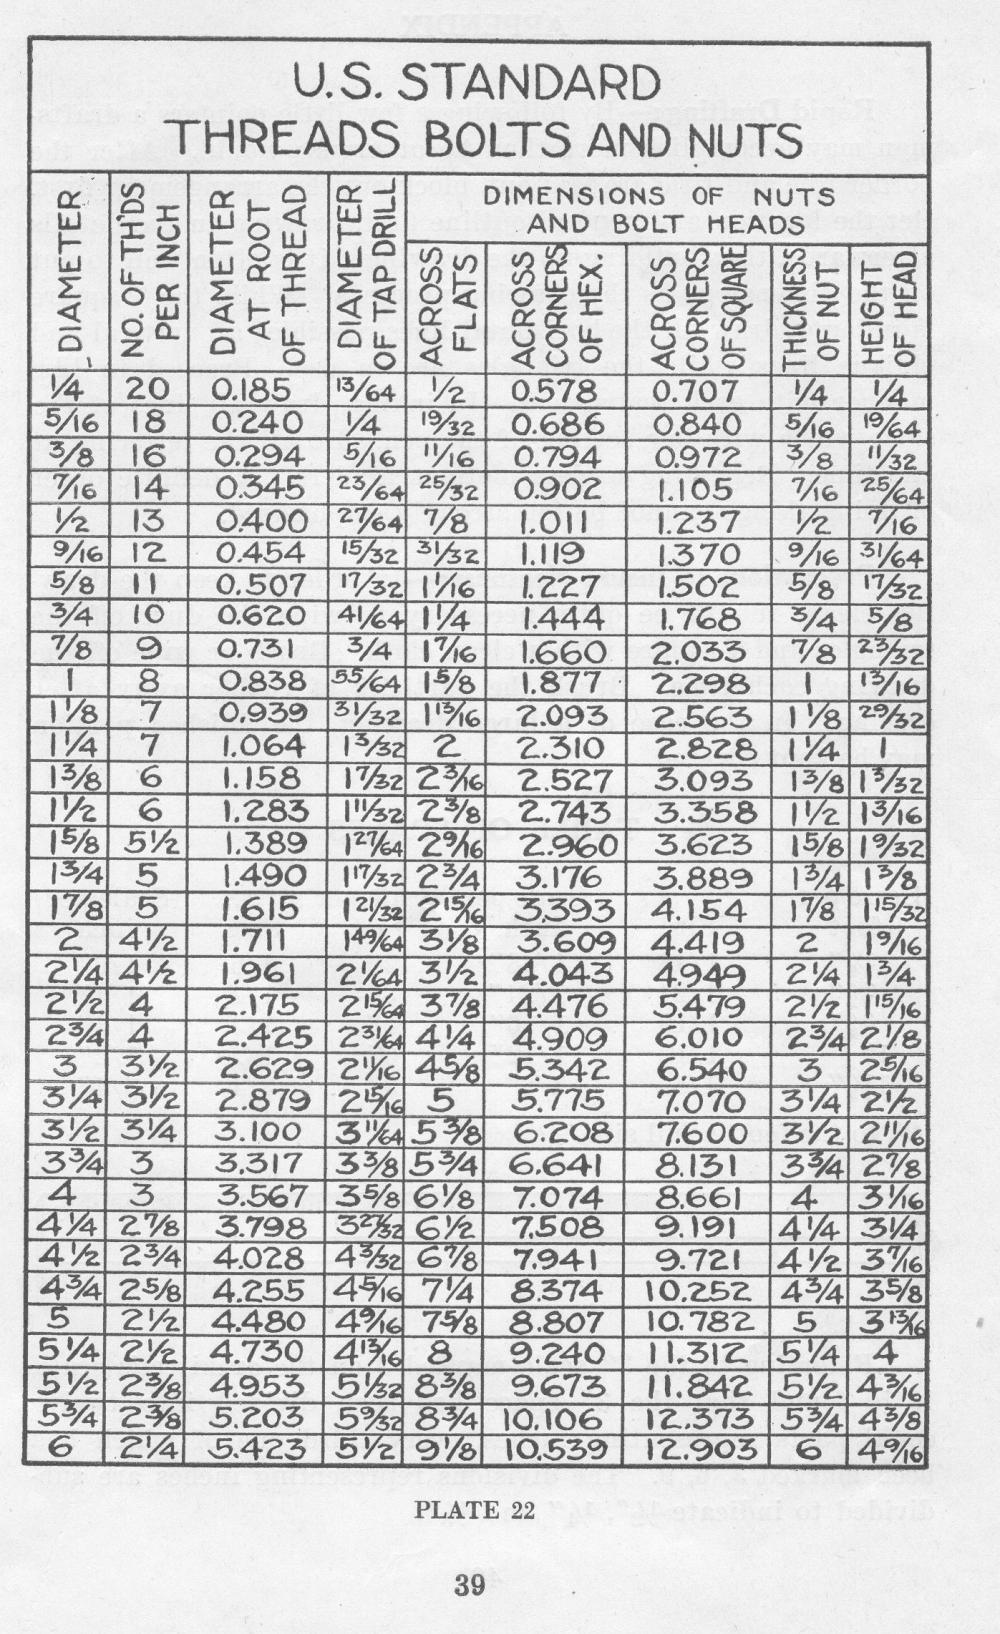 U.S. STANDARD
THREADS BOLTS AND NUTS
DIAMETER
NO. OF TH'DS
PER INCH
DIAMETER
AT ROOT
OF THREAD
DIAMETER
OF TAP DRILL
DIMENSIONS OF NUTS
AND BOLT HEADS
ACROSS
FLATS
ACROSS
CORNERS
OF HEX.
ACROSS
CORNERS
OF SQUARE
THICKNESS
OF NUT
HEIGHT
OF HEAD
1/4 20 0.185 13/64 1/2 0.578 0.707 1/4 1/4
5/16 18 0.240 1/4 19/32 0.686 0.840 5/16 19/64
3/8 16 0.294 5/16 11/16 0.794 0.972 3/8 11/32
7/16 14 0.345 23/64 25/32 0.902 1.105 7/16 25/64
1/2 13 0.400 27/64 7/8 1.011 1.237 1/2 7/16
9/16 12 0.454 15/32 31/32 1.119 1.370 9/16 31/64
5/8 11 0.507 17/32 1 1/16 1.227 1.502 5/8 17/32
3/4 10 0.620 41/64 1 1/4 1.444 1.768 3/4 5/8
7/8 9 0.731 3/4 1 7/16 1.660 2.033 7/8 23/32
1 8 0.838 55/64 1 5/8 1.877 2.298 1 13/16
1 1/8 7 0.939 31/32 1 13/16 2.093 2.563 1 1/8 29/32
1 1/4 7 1.064 1 3/32 2 2.310 2.828 1 1/4 1
1 3/8 6 1.158 1 7/32 2 3/16 2.527 3.093 1 3/8 1 3/32
1 1/2 6 1.283 1 11/32 2 3/8 2.743 3.358 1 1/2 1 3/16
1 5/8 5 1/2 1.389 1 27/64 2 9/16 2.960 3.623 1 5/8 1 9/32
1 3/4 5 1.490 1 17/32 2 3/4 3.176 3.889 1 3/4 1 3/8
1 7/8 5 1.615 1 21/32 2 15/16 3.393 4.154 1 7/8 1 15/32
2 4 1/2 1.711 1 49/64 3 1/8 3.609 4.419 2 1 9/16
2 1/4 4 1/2 1.961 2 1/64 3 1/2 4.043 4.949 2 1/4 1 3/4
2 1/2 4 2.175 2 15/64 3 7/8 4.476 5.479 2 1/2 1 15/16
2 3/4 4 2.425 2 31/64 4 1/4 4.909 6.010 2 3/4 2 1/8
3 3 1/2 2.629 2 11/16 4 5/8 5.342 6.540 3 2 5/16
3 1/4 3 1/2 2.879 2 15/16 5 5.775 7.070 3 1/4 2 1/2
3 1/2 3 1/4 3.100 3 11/64 5 3/8 6.208 7.600 3 1/2 2 11/16
3 3/4 3 3.317 3 3/8 5 3/4 6.641 8.131 3 3/4 2 7/8
4 3 3.567 3 5/8 6 1/8 7.074 8.661 4 3 1/16
4 1/4 2 7/8 3.798 3 27/32 6 1/2 7.508 9.191 4 1/4 3 1/4
4 1/2 2 3/4 4.028 4 3/32 6 7/8 7.941 9.721 4 1/2 3 7/16
4 3/4 2 5/8 4.255 4 5/16 7 1/4 8.374 10.252 4 3/4 3 5/8
5 2 1/2 4.480 4 9/16 7 5/8 8.807 10.782 5 3 13/16
5 1/4 2 1/2 4.730 4 13/16 8 9.240 11.312 5 1/4 4
5 1/2 2 3/8 4.953 5 1/32 8 3/8 9.673 11.842 5 1/2 4 3/16
5 3/4 2 3/8 5.203 5 9/32 8 3/4 10.106 12.373 5 3/4 4 3/8
6 2 1/4 5.423 5 1/2 9 1/8 10.539 12.903 6 4 9/16
PLATE 22
39